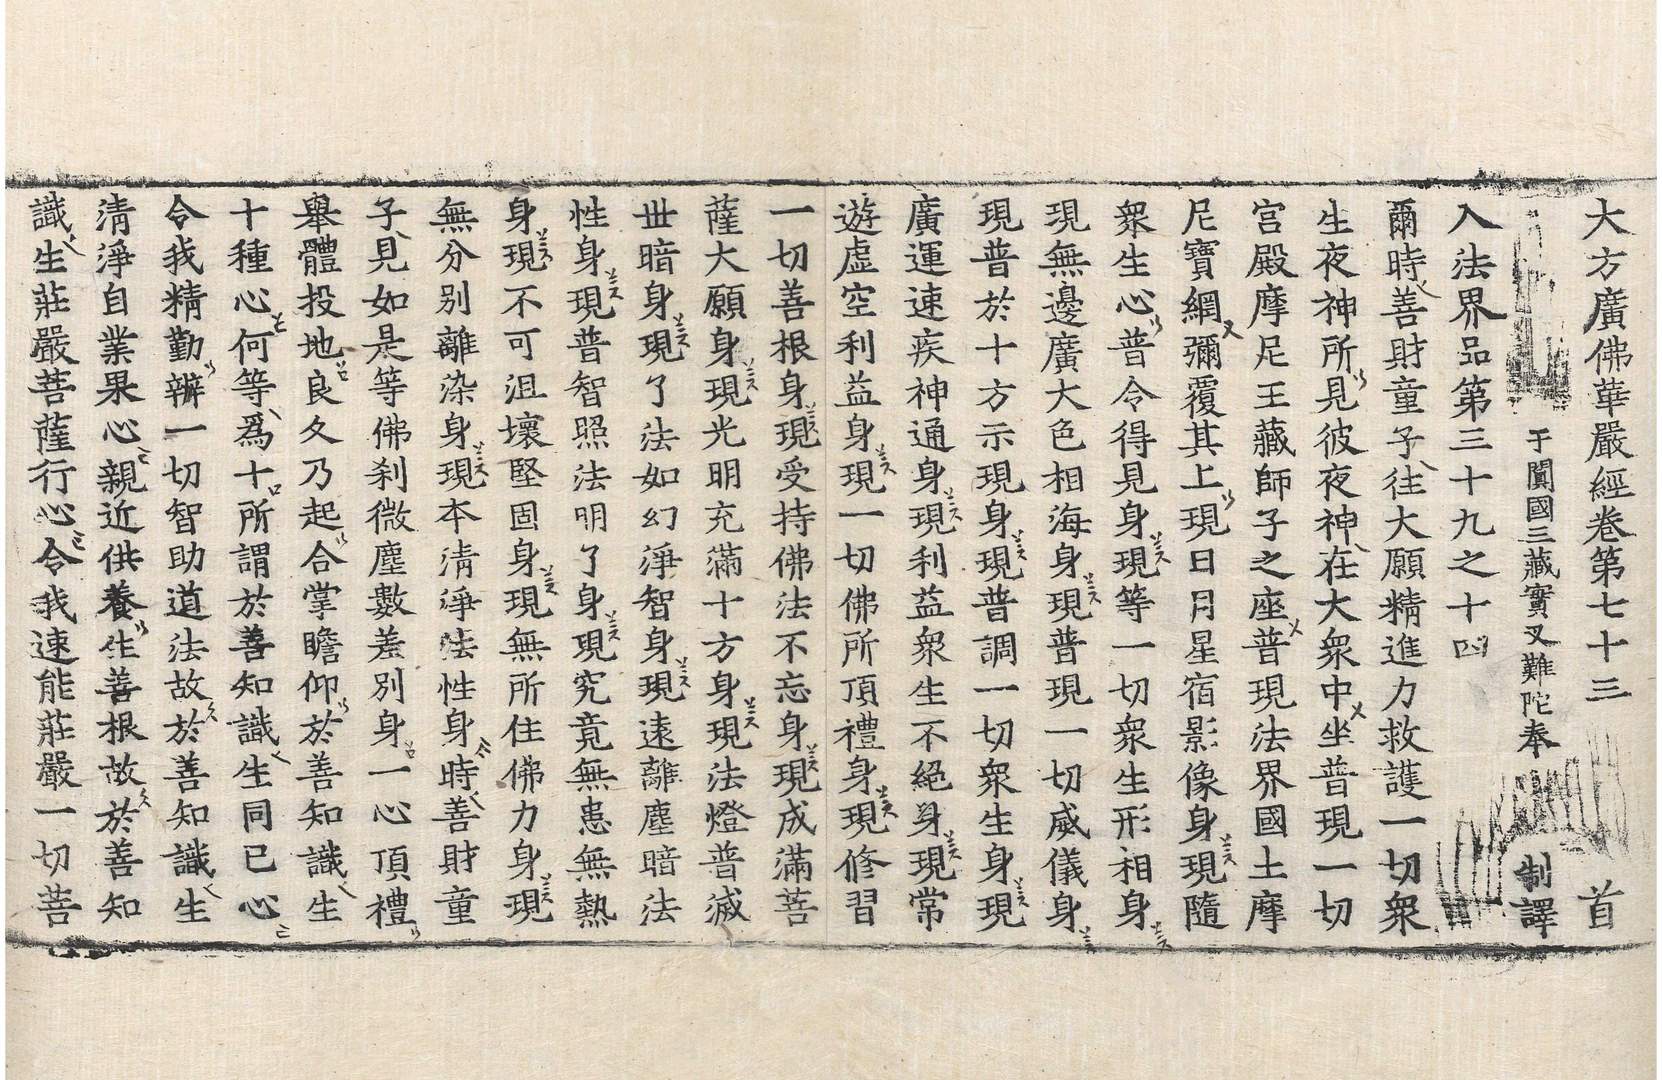 大方廣佛華嚴經卷第七十三 首
于闐國三藏實叉難陀奉 制譯
入法界品第三十九之十四
爾時善財童子往大願精進力救護一切衆
生夜神所見彼夜神在大衆中坐普現一切
宮殿摩尼王藏師子之座普現法界國土摩
尼寶網彌覆其上現日月星宿影像身現隨
衆生心普令得見身現等一切衆生形相身
現無邊廣大色相海身現普現一切威儀身
現普於十方示現身現普調一切衆生身現
廣運速疾神通身現利益衆生不絕身現常
遊虛空利益身現一切佛所頂禮身現修習
一切善根身現受持佛法不忘身現成滿菩
薩大願身現光明充滿十方身現法燈普滅
世暗身現了法如幻淨智身現遠離塵暗法
性身現普智照法明了身現究竟無患無熱
身現不可沮壞堅固身現無所住佛力身現
無分别離染身現本清淨法性身時善財童
子見如是等佛刹微塵數差别身一心頂禮
舉體投地良久乃起合掌瞻仰於善知識生
十種心何等爲十所謂於善知識生同已心
令我精勤辦一切智助道法故於善知識生
清淨自業果心親近供養生善根故於善知
識生莊嚴菩薩行心令我速能莊嚴一切菩